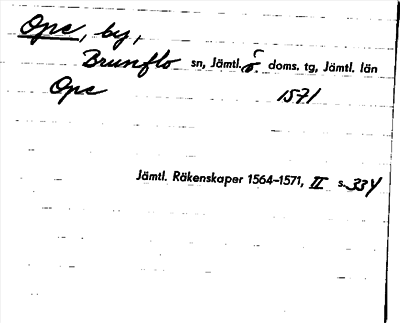 Ope, by,
Brunflo sn, Jämtl. ö. doms. tg, Jämtl. län
Ope 1571
Jämtl. Räkenskaper 1564–1571, II s. 334